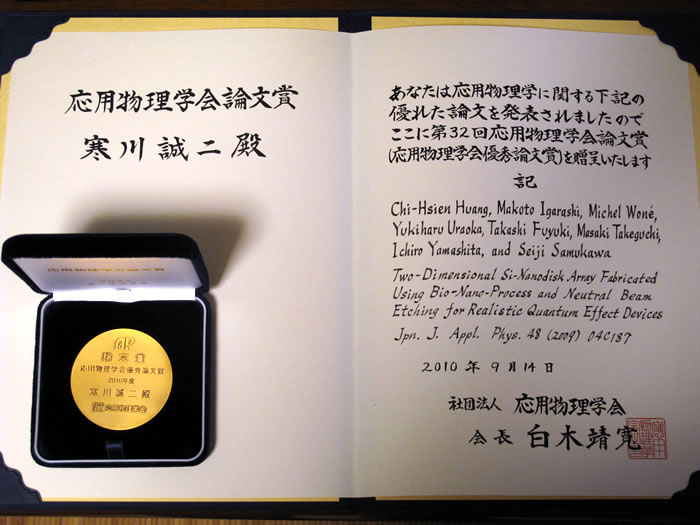 応用物理学会論文賞
寒川誠二殿
あなたは応用物理学に関する下記の
優れた論文を発表されましたので
ここに第32回応用物理学会論文賞
(応用物理学会優秀論文賞)を贈呈いたします
記
Chi-Hsien Huang, Makoto Igarashi, Michel Woné,
Yukiharu Uraoka, Takashi Fuyuki, Masaki Takeguchi,
Ichiro Yamashita, and Seiji Samukawa
Two-Dimensional Si-Nanodisk Array Fabricated
Using Bio-Nano-Process and Neutral Beam
Etching for Realistic Quantum Effect Devices
Jpn. J. Appl. Phys. 48 (2009) 04C187
2010年9月14日
社団法人 応用物理学会
会長 白木靖寛
論文賞
応用物理学会優秀論文賞
2010年度
寒川誠二殿
応用物理学会